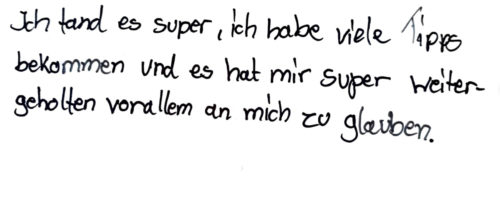 Ich fand es super, ich habe viele Tipps
bekommen und es hat mir super weiter-
geholfen vorallem an mich zu glauben.